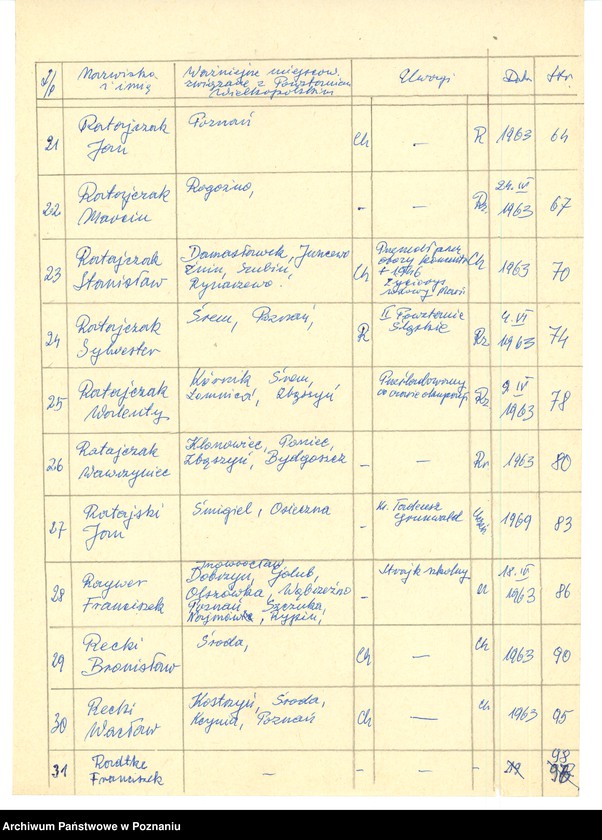 L/p Nazwisko i imię Ważniejsze miejscow. związane z Powstaniem Wielkopolskim Uwagi Data Str.
21 Ratajczak Jan Poznań Ch — R 1963 64
22 Ratajczak Marcin Rogoźno, - — Rz. 24.IV 1963 67
23 Ratajczak Stanisław Damasławek, Juncewo Żnin, Szubin, Rynarzewo. Ch obozy + 1946 Życiorys Ch 1963 70
24 Ratajczak Sylwester Śrem, Poznań, R II Powstanie Śląskie Rz 4.VI 1963 74
25 Ratajczak Walenty Kórnik Śrem, Łomnica, Zbąszyń Prześladowany w czasie okupacji Rz 9.IV 1963 78
26 Ratajczak Wawrzyniec Kłonowiec, Poniec, Zbąszyń, Bydgoszcz - — Rn 1963 80
27 Ratajski Jan Śmigiel, Osieczna - Kr. Tadeusz Grunwald 1969 83
28 Raywer Franciszek Inowrocław Dobrzyń, Golub, Olszówka, Wąbrzeźno Poznań, Szczuka, Rypin, - Strajk szkolny 18.IV 1963 86
29 Recki Bronisław Środa, Ch — Ch 1963 90
30 Recki Wacław Kostrzyń, Środa, Kcynia, Poznań Ch — Ch 1963 95
31 Radtke Franciszek — - - - 98
Archiwum Państwowe w Poznaniu